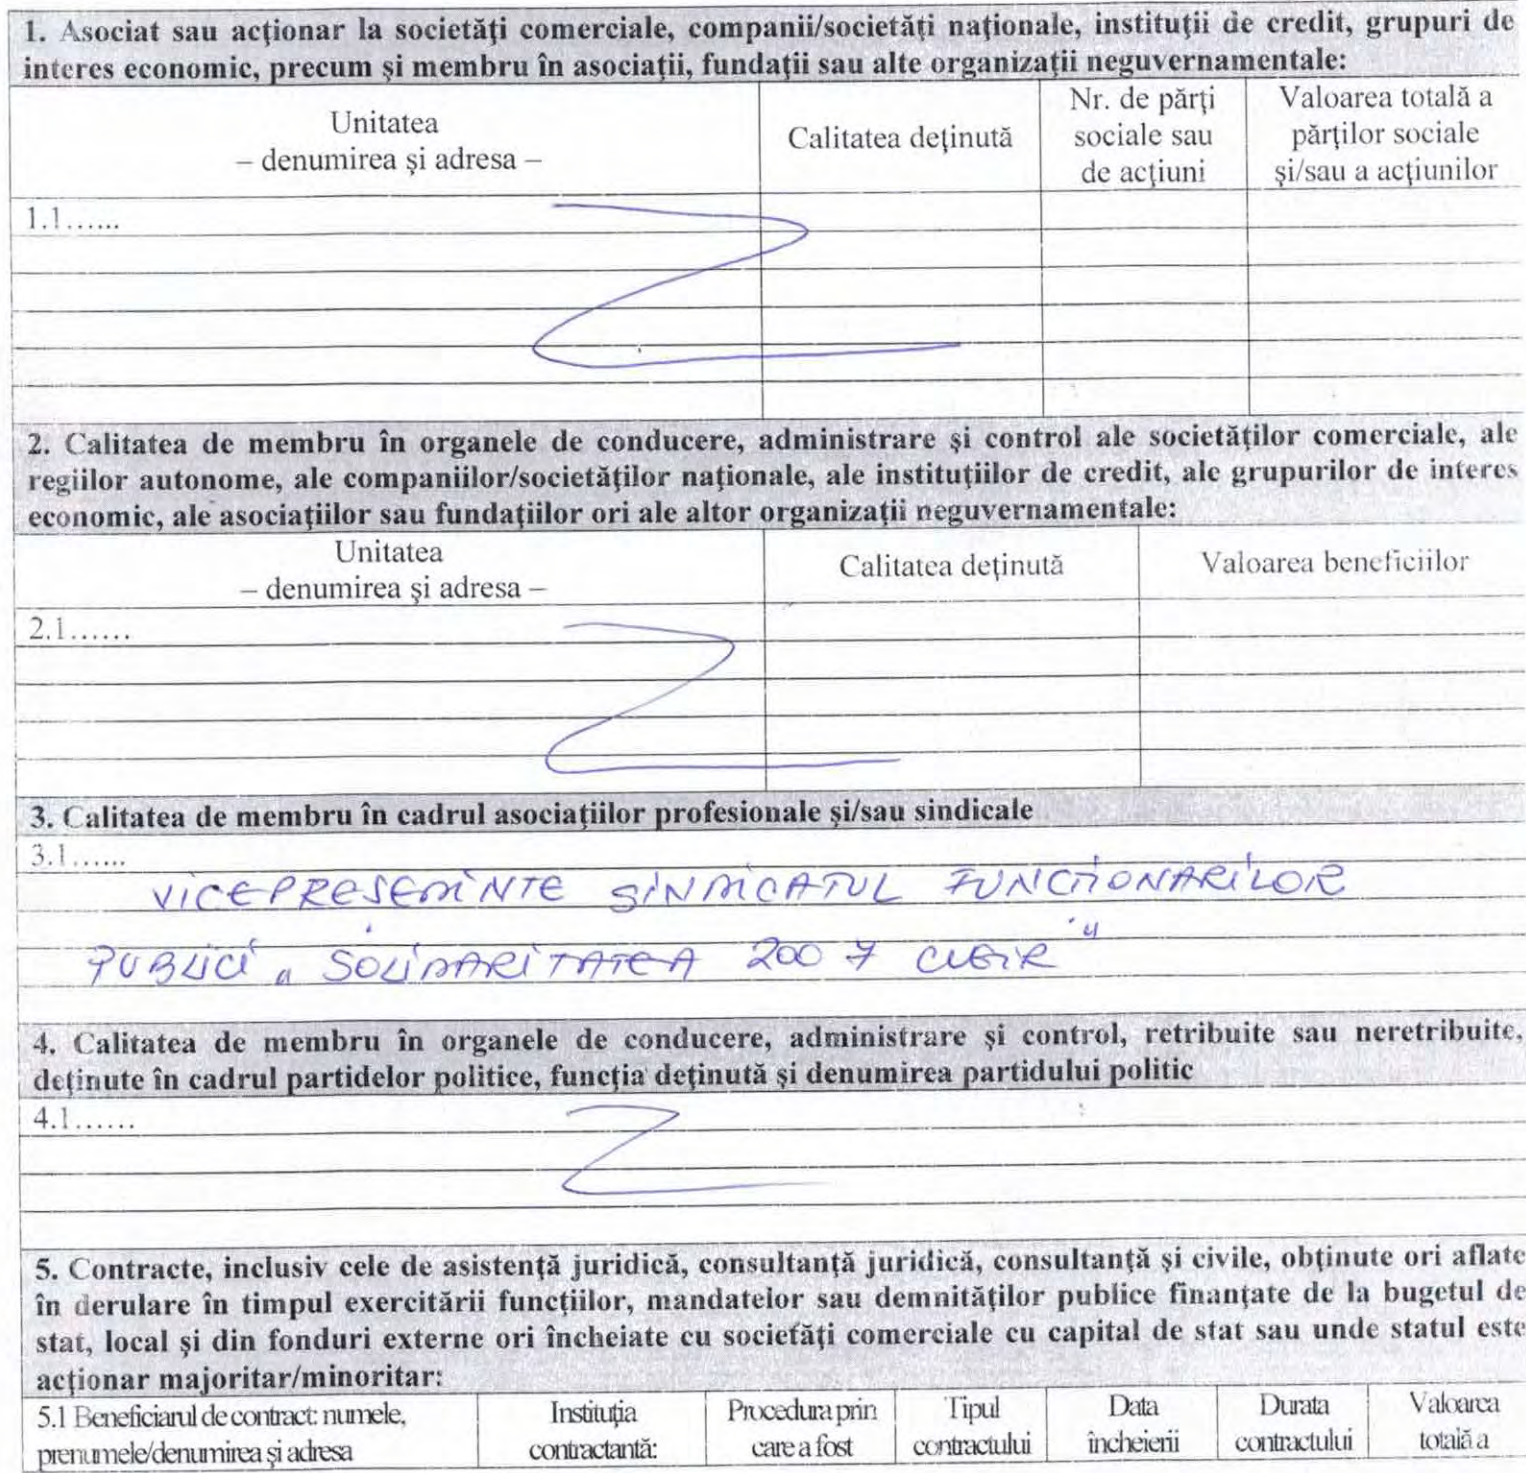 1. Asociat sau acţionar la societăţi comerciale, companii/societăţi naţionale, instituţii de credit, grupuri de
interes economic, precum şi membru în asociaţii, fundaţii sau alte organizaţii neguvernamentale:
Unitatea
– denumirea şi adresa –
Calitatea deţinută
Nr. de părţi
sociale sau
de acţiuni
Valoarea totală a
părţilor sociale
şi/sau a acţiunilor
1.1......
2. Calitatea de membru în organele de conducere, administrare şi control ale societăţilor comerciale, ale
regiilor autonome, ale companiilor/societăţilor naţionale, ale instituţiilor de credit, ale grupurilor de interes
economic, ale asociaţiilor sau fundaţiilor ori ale altor organizaţii neguvernamentale:
Unitatea
– denumirea şi adresa –
Calitatea deţinută
Valoarea beneficiilor
2.1......
3. Calitatea de membru în cadrul asociaţiilor profesionale şi/sau sindicale
3.1......
VICEPRESEDINTE SINDICATUL FUNCTIONARILOR
PUBLICI „ SOLIDARITATEA 2007
4. Calitatea de membru în organele de conducere, administrare şi control, retribuite sau neretribuite,
deţinute în cadrul partidelor politice, funcţia deţinută şi denumirea partidului politic
4.1......
5. Contracte, inclusiv cele de asistenţă juridică, consultanţă juridică, consultanţă şi civile, obţinute ori aflate
în derulare în timpul exercitării funcţiilor, mandatelor sau demnităţilor publice finanţate de la bugetul de
stat, local şi din fonduri externe ori încheiate cu societăţi comerciale cu capital de stat sau unde statul este
acţionar majoritar/minoritar:
5.1 Beneficiarul de contract: numele,
prenumele/denumirea şi adresa
Instituţia
contractantă:
Procedura prin
care a fost
Tipul
contractului
Data
încheierii
Durata
contractului
Valoarea
totală a